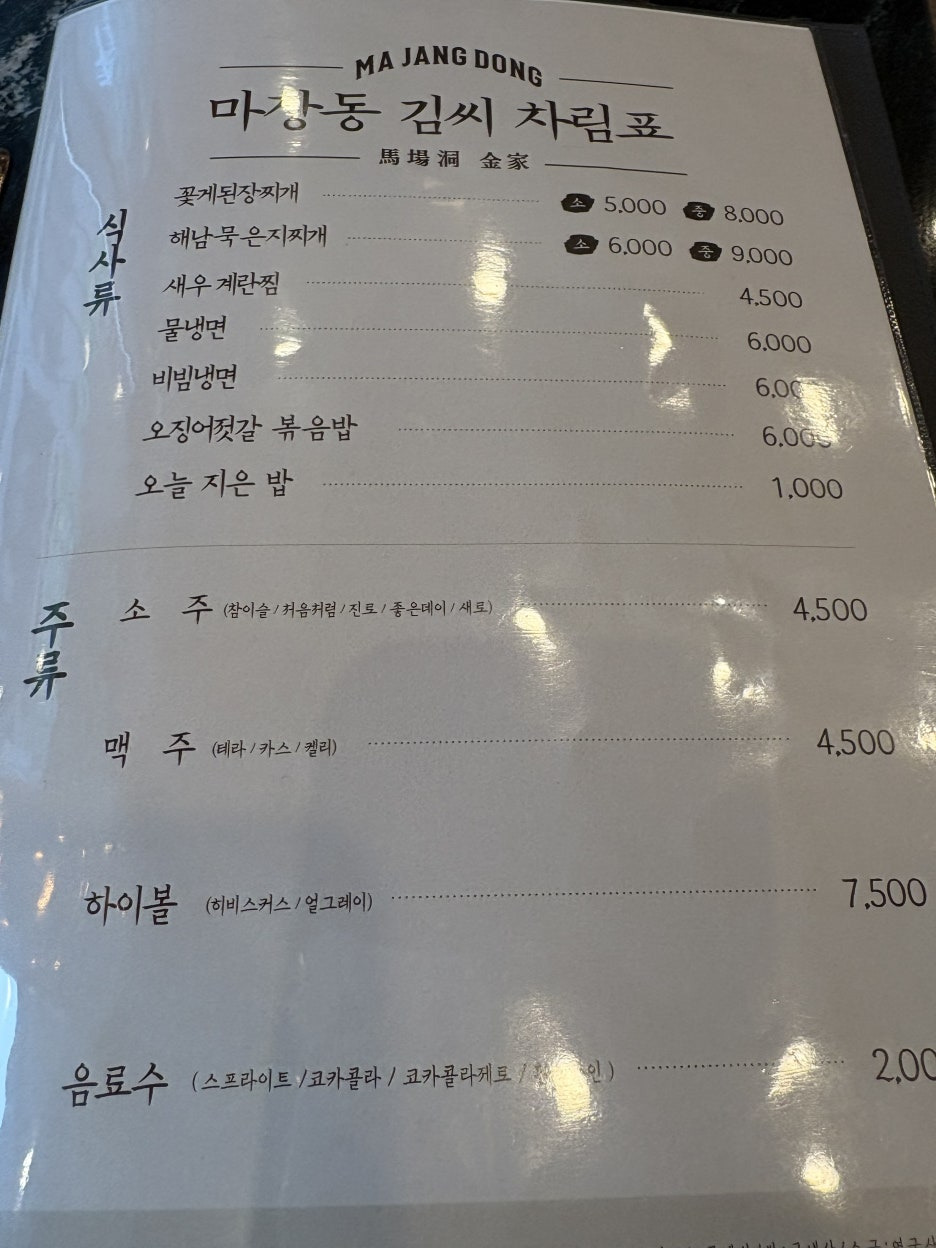 MA JANG DONG
마장동 김씨 차림표
馬場洞 金家
식사류
꽃게된장찌개 소 5,000 중 8,000
해남 묵은지찌개 소 6,000 중 9,000
새우 계란찜 4,500
물냉면 6,000
비빔냉면
오징어젓갈 볶음밥 6,000
오늘 지은 밥 1,000
주류
소 주 (참이슬 / 처음처럼 / 진로 / 좋은데이 / 새로) 4,500
맥 주 (테라 / 카스 / 켈리) 4,500
하이볼 (히비스커스 / 얼그레이) 7,500
음료수 (스프라이트 / 코카콜라 / 코카콜라제로 /